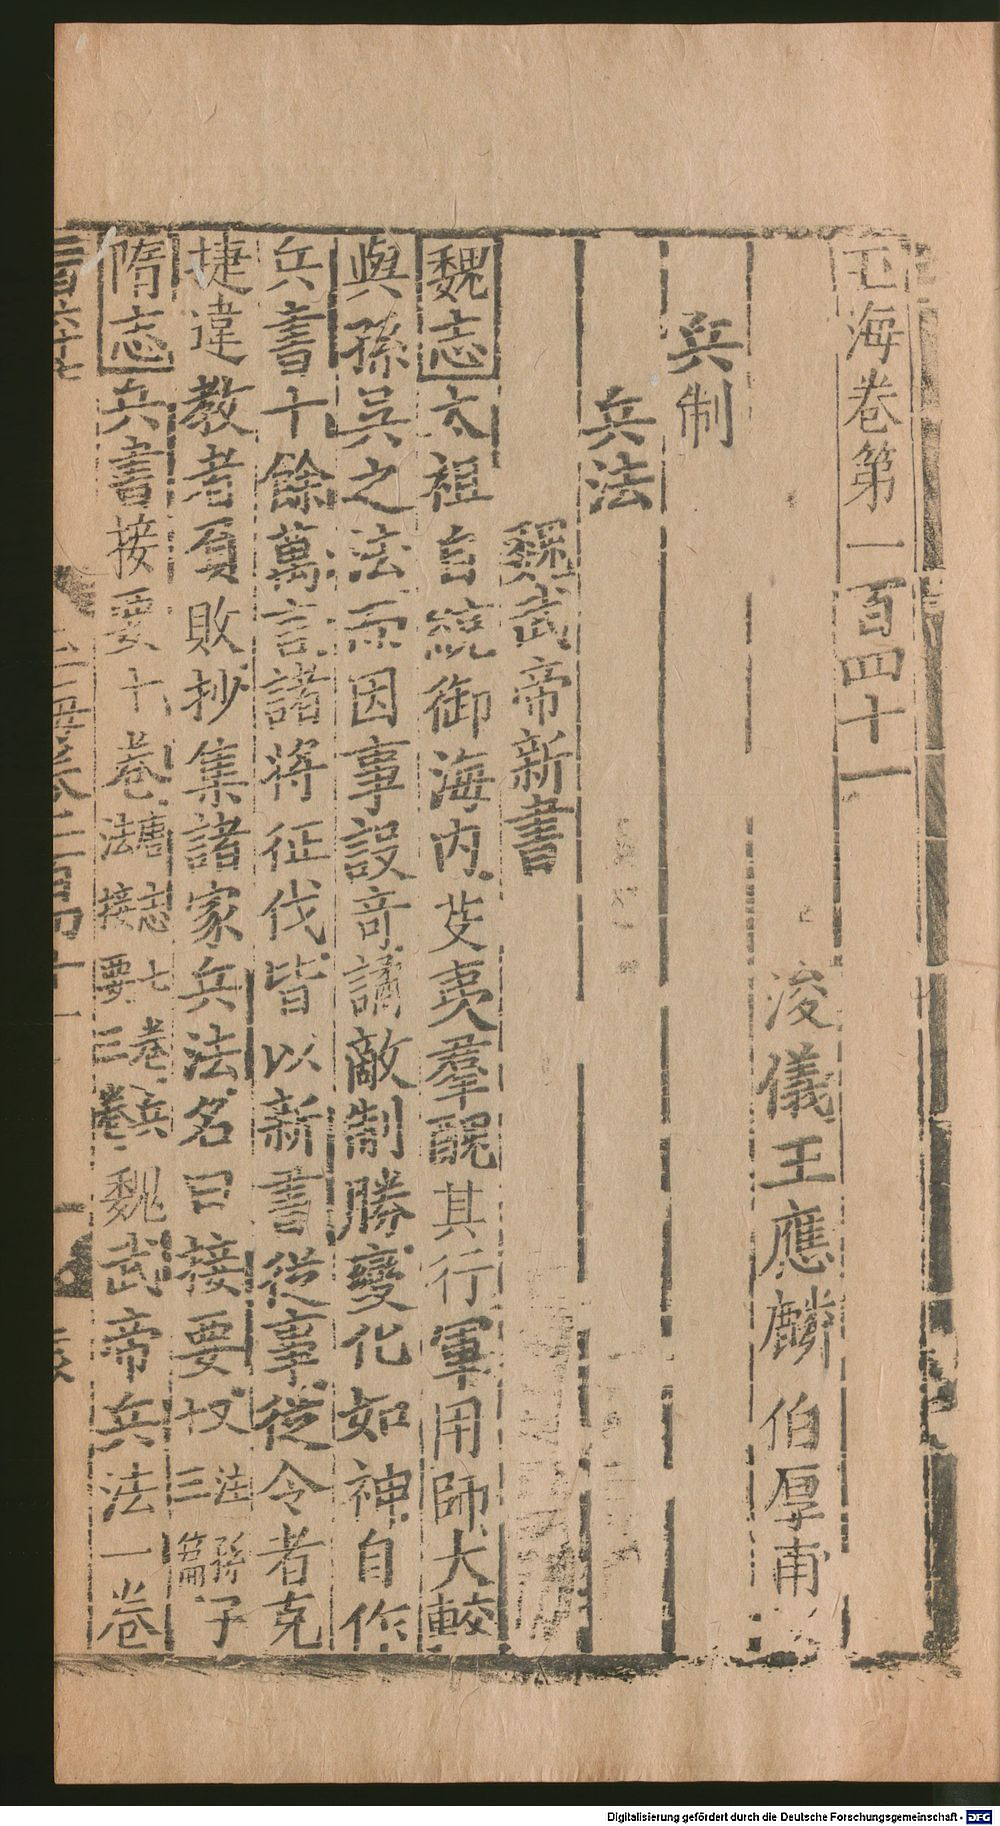 玉海卷第一百四十一
浚儀王應麟伯厚甫
兵制
兵法
魏武帝新書
魏志太祖自統御海内芟夷羣醜其行軍用師大較
與孫吳之法而因事設奇譎敵制勝變化如神自作
兵書十餘萬言諸將征伐皆以新書從事從令者克
捷違教者負敗抄集諸家兵法名曰接要
注孫子
三篇
隋志兵書接要十卷
唐志七卷兵
法接要三卷
魏武帝兵法一卷
玉海卷一百四十一
一
Digitalisierung gefördert durch die Deutsche Forschungsgemeinschaft - DFG